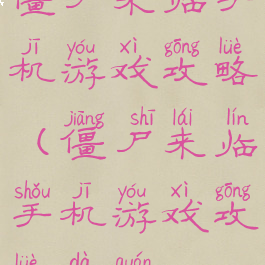 僵尸来临手
jī yóu xì gōng lüè
机游戏攻略
jiāng shī lái lín
(僵尸来临
shǒu jī yóu xì gōng
手机游戏攻
lüè dà quán